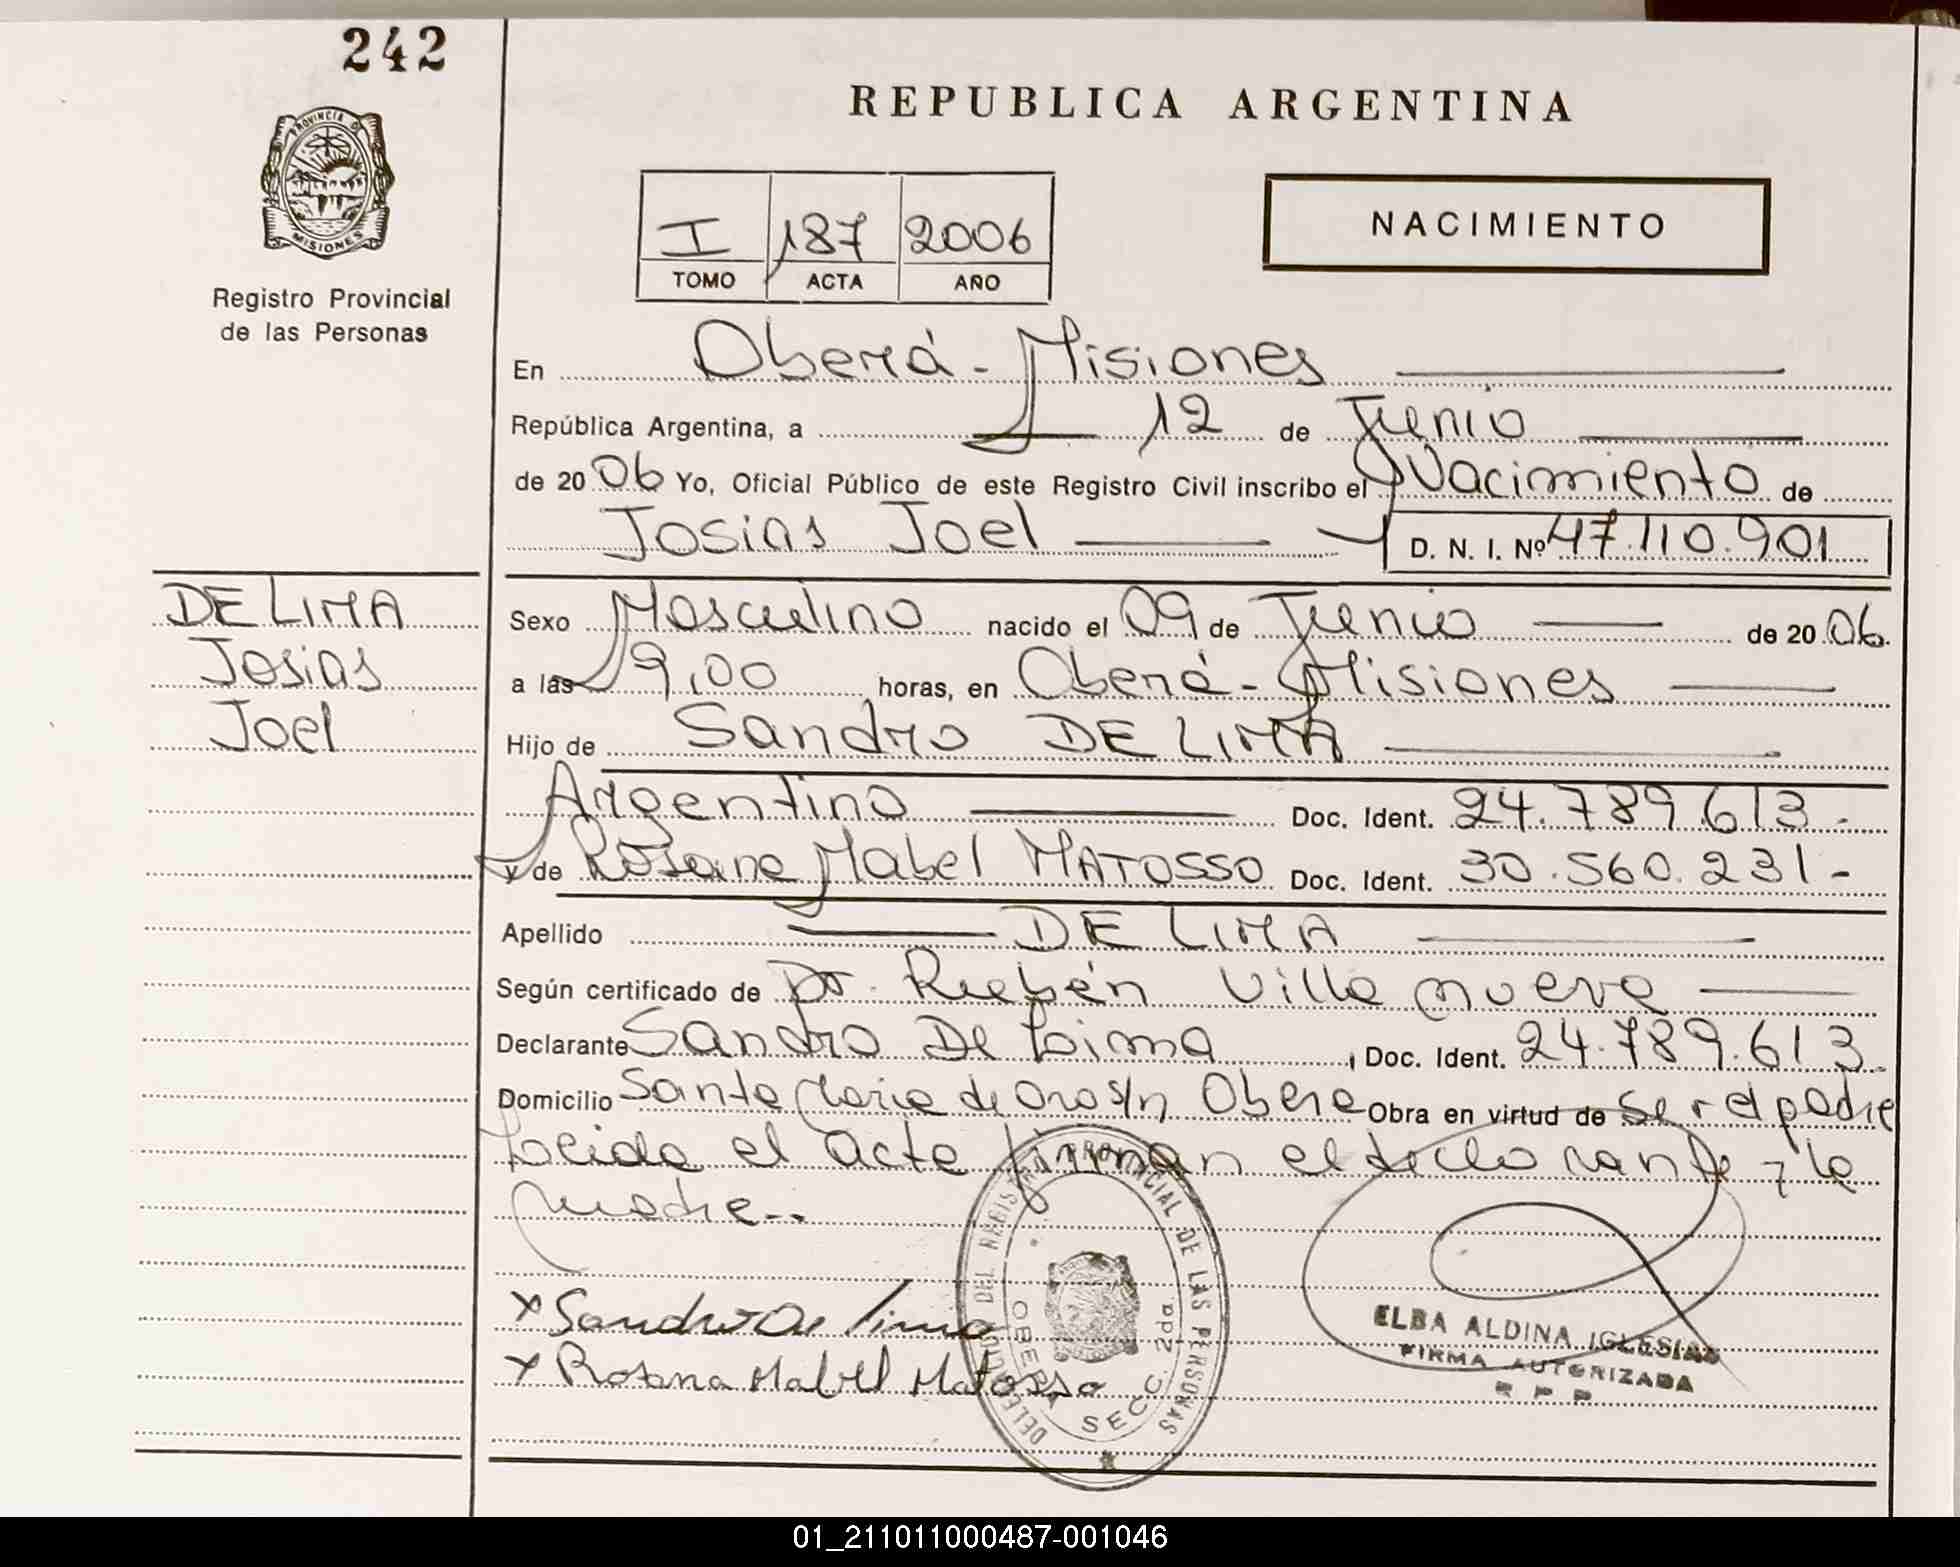 242
PROVINCIA DE
MISIONES
Registro Provincial
de las Personas
REPUBLICA ARGENTINA
I 187 2006
TOMO ACTA AÑO
NACIMIENTO
En Oberá - Misiones
República Argentina, a 12 de Junio
de 2006 Yo, Oficial Público de este Registro Civil inscribo el Nacimiento de
Josias Joel D. N. I. Nº 47.110.901
DE LIMA
Josias
Joel
Sexo Masculino nacido el 09 de Junio de 2006.
a las 9,00 horas, en Oberá - Misiones
Hijo de Sandro DE LIMA
Argentino Doc. Ident. 24.789.613.-
y de Rosana Mabel MATOSSO Doc. Ident. 30.560.231-
Apellido DE LIMA
Según certificado de Dr. Rubén Villanueva
Declarante Sandro De Lima, Doc. Ident. 24.789.613
Domicilio Santa María de Oro s/n Oberá Obra en virtud de ser el padre
Leida el acta firman el declarante y la
madre..
x Sandro De lima
x Rosana Mabel Matosso
DELEGACION DEL REGISTRO PROVINCIAL DE LAS PERSONAS
OBERA SECC. 2da
ELBA ALDINA IGLESIAS
FIRMA AUTORIZADA
R. P. P.
01_211011000487-001046